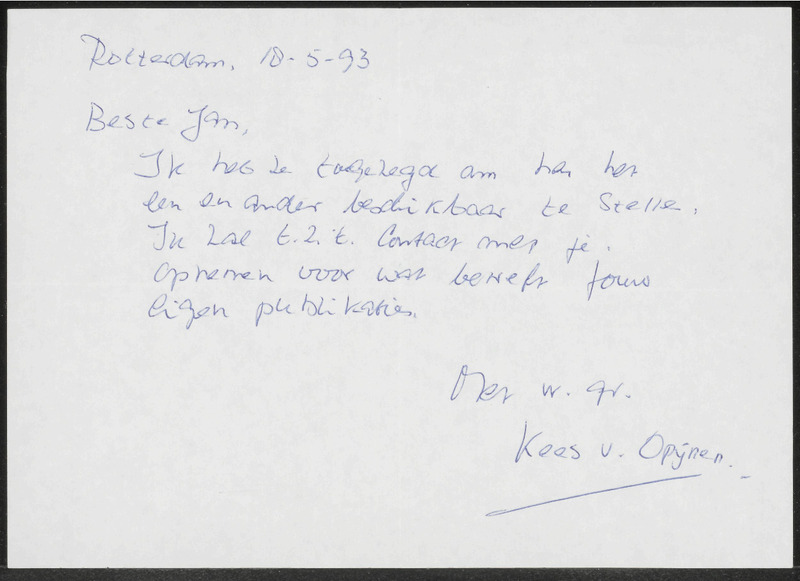 Rotterdam, 18-5-93
Beste Jan,
Ik heb ze toegezegd om hen het
een en ander beschikbaar te stellen.
Ik zal t.z.t. contact met je
opnemen voor wat betreft jouw
eigen publikaties.
Met vr. gr.
Kees v. Opijnen.